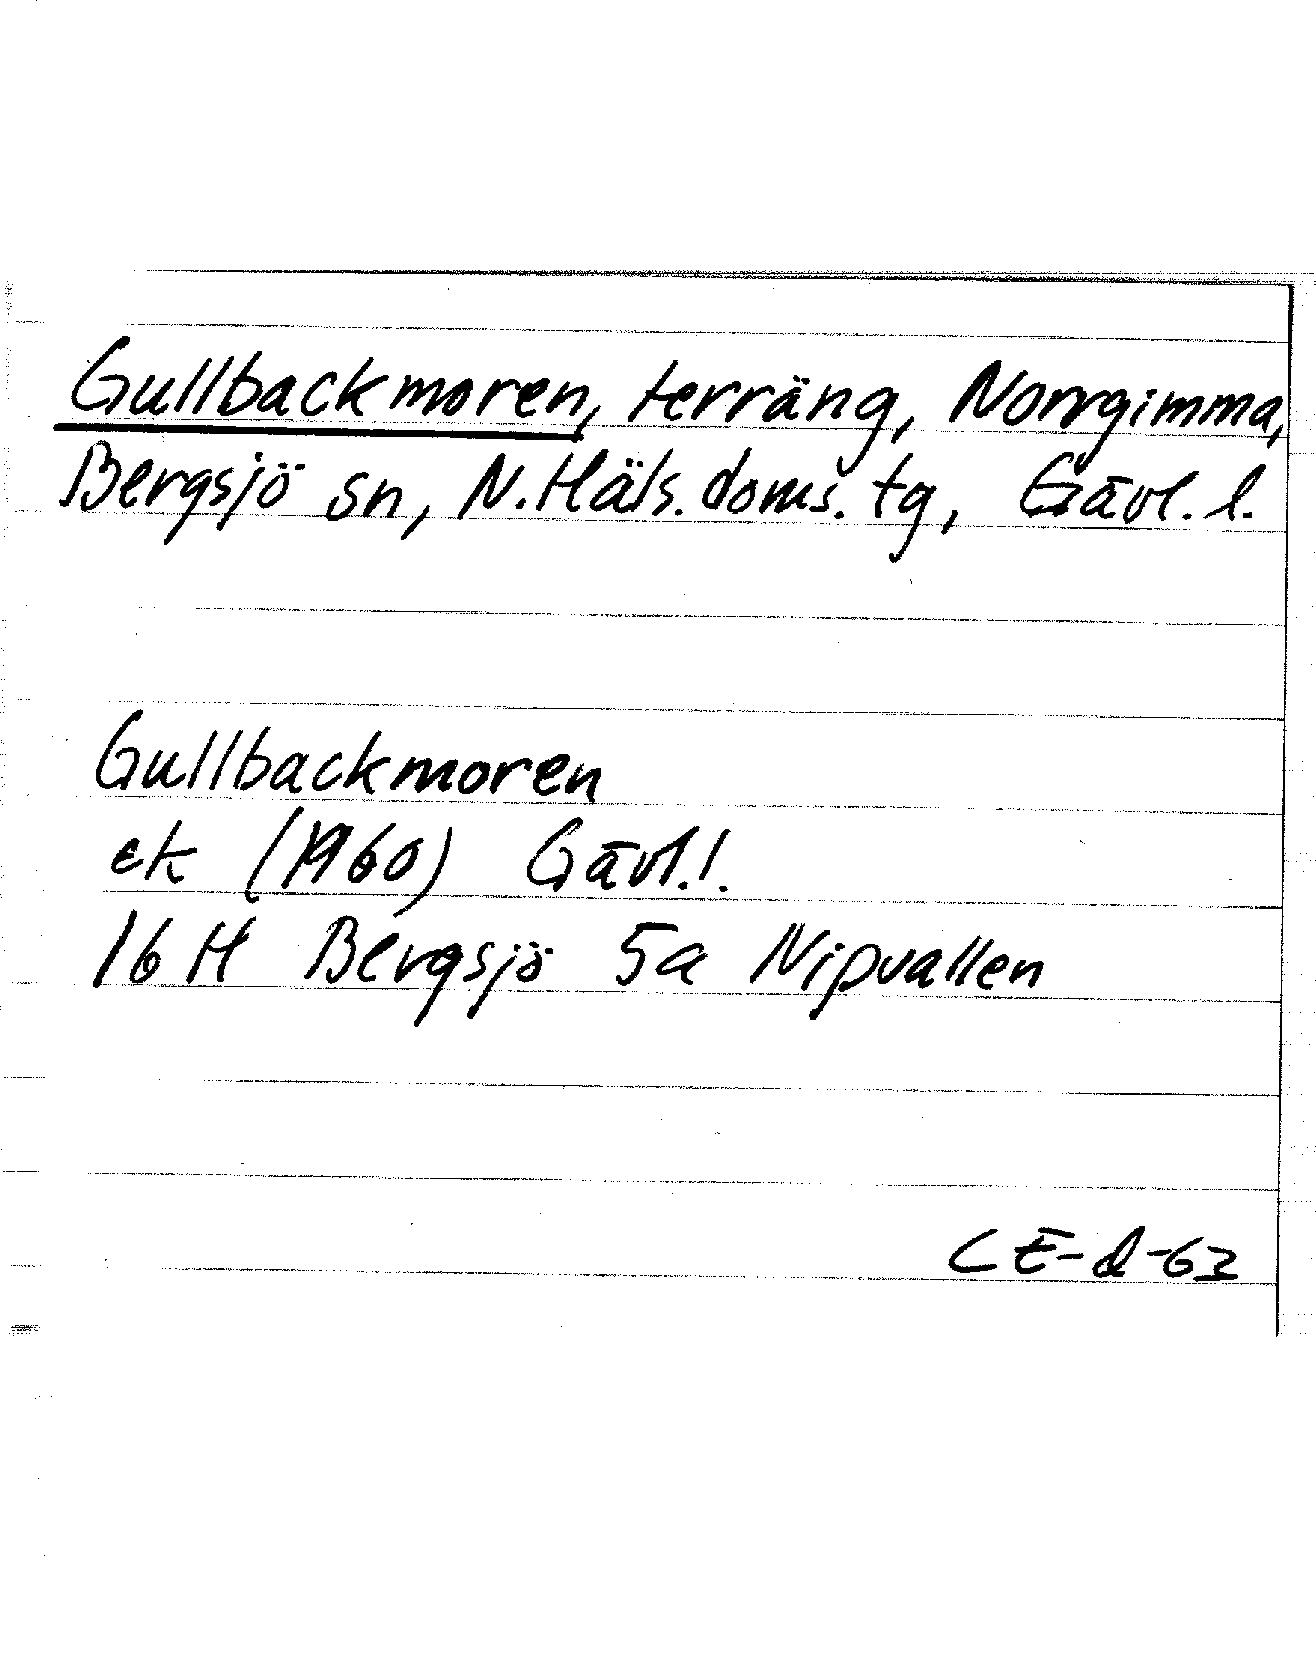 Gullbackmoren, terräng, Norrgimma,
Bergsjö sn, N.Häls.doms.tg, Gävl.l.
Gullbackmoren
ek (1960) Gävl.l.
16 H Bergsjö 5a Nipvallen
CE-d-63